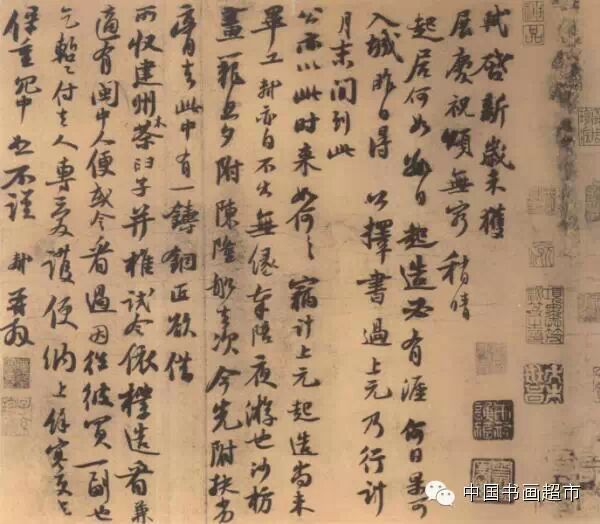 軾啓新歲未獲
展慶祝頌無窮稍晴
起居何如數日起造必有涯何日果可
入城昨日得公擇書過上元乃行計
月末間到此
公亦以此時来如何々竊計上元起造尚未
畢工軾亦自不出無緣奉陪夜游也沙枋
畫籠旦夕附陳隆船去次今先附扶劣
膏去此中有一鑄銅匠欲借
所收建州茶木臼子并椎試令依樣造看兼
適有閩中人便或令看過因往彼買一副也
乞暫付去人專愛護便納上餘寒更乞
保重冗中恕不謹 軾再拜
中国书画超市